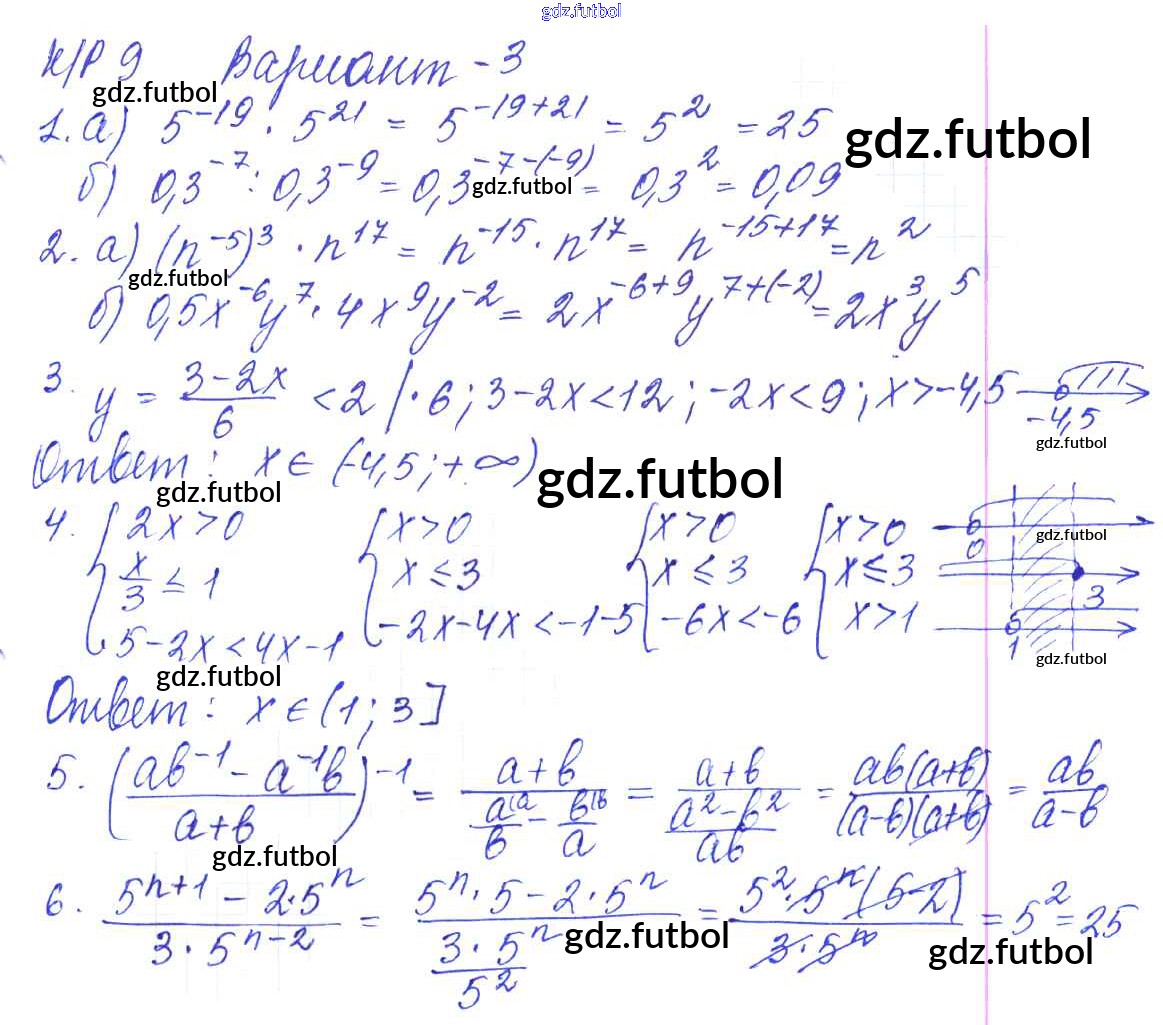 gdz.futbol
К/Р 9 Вариант - 3
gdz.futbol
1. а) 5^-19 · 5^21 = 5^-19+21 = 5^2 = 25
gdz.futbol
б) 0,3^-7 : 0,3^-9 = 0,3^-7-(-9) = 0,3^2 = 0,09
gdz.futbol
2. а) (n^-5)^3 · n^17 = n^-15 · n^17 = n^-15+17 = n^2
gdz.futbol
б) 0,5x^-6 y^7 · 4x^9 y^-2 = 2x^-6+9 y^7+(-2) = 2x^3 y^5
3. y = (3-2x)/6 < 2 | · 6; 3-2x<12; -2x<9; x>-4,5
-4,5
gdz.futbol
Ответ: x ∈ (-4,5; +∞)
gdz.futbol
gdz.futbol
4. { 2x>0 { x>0 { x>0 { x>0
0
gdz.futbol
x/3 ≤ 1 x ≤ 3 x ≤ 3 x ≤ 3
3
5-2x<4x-1 -2x-4x<-1-5 -6x<-6 x>1
1
gdz.futbol
gdz.futbol
Ответ: x ∈ (1; 3]
5. ((ab^-1 - a^-1 b)/(a+b))^-1 = (a+b)/(a^(a/b - b^(b/a) = (a+b)/((a^2-b^2)/ab) = ab(a+b)/((a-b)(a+b)) = ab/(a-b)
gdz.futbol
6. (5^n+1 - 2·5^n)/(3·5^n-2) = (5^n · 5 - 2·5^n)/((3·5^n)/5^2) = (5^2 · 5^n (5-2))/(3·5^n) = 5^2 = 25
gdz.futbol
gdz.futbol